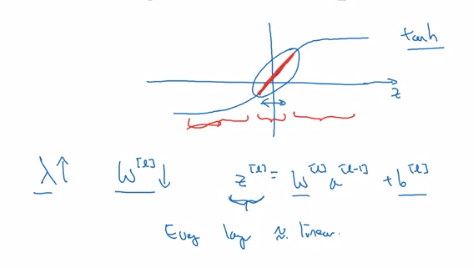 tanh
z
λ↑ W^[l]↓ z^[l] = W^[l] a^[l-1] + b^[l]
Every layer ≈ linear.